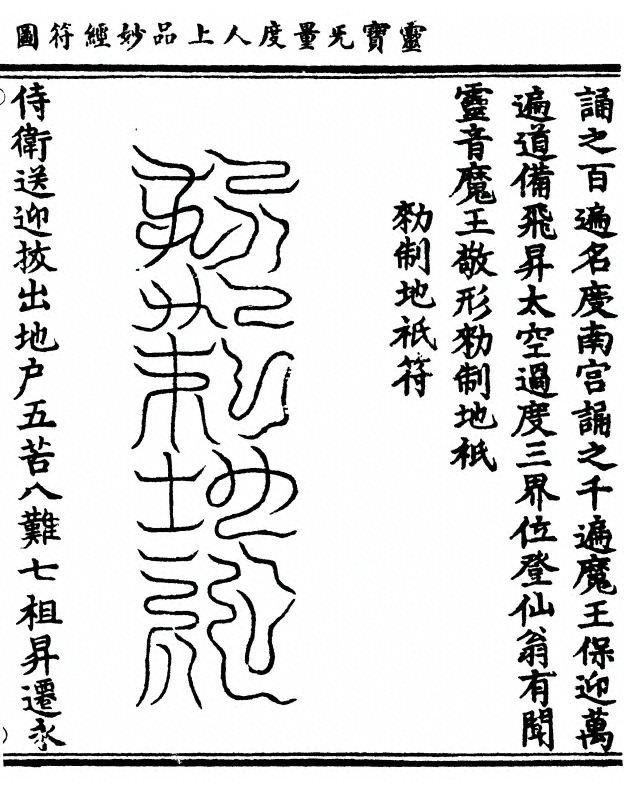 靈寶旡量度人上品妙經符圖
誦之百遍名度南宮誦之千遍魔王保迎萬
遍道備飛昇太空過度三界位登仙翁有聞
靈音魔王敬形勑制地祇
勑制地祇符
侍衛送迎拔出地户五苦八難七祖昇遷永